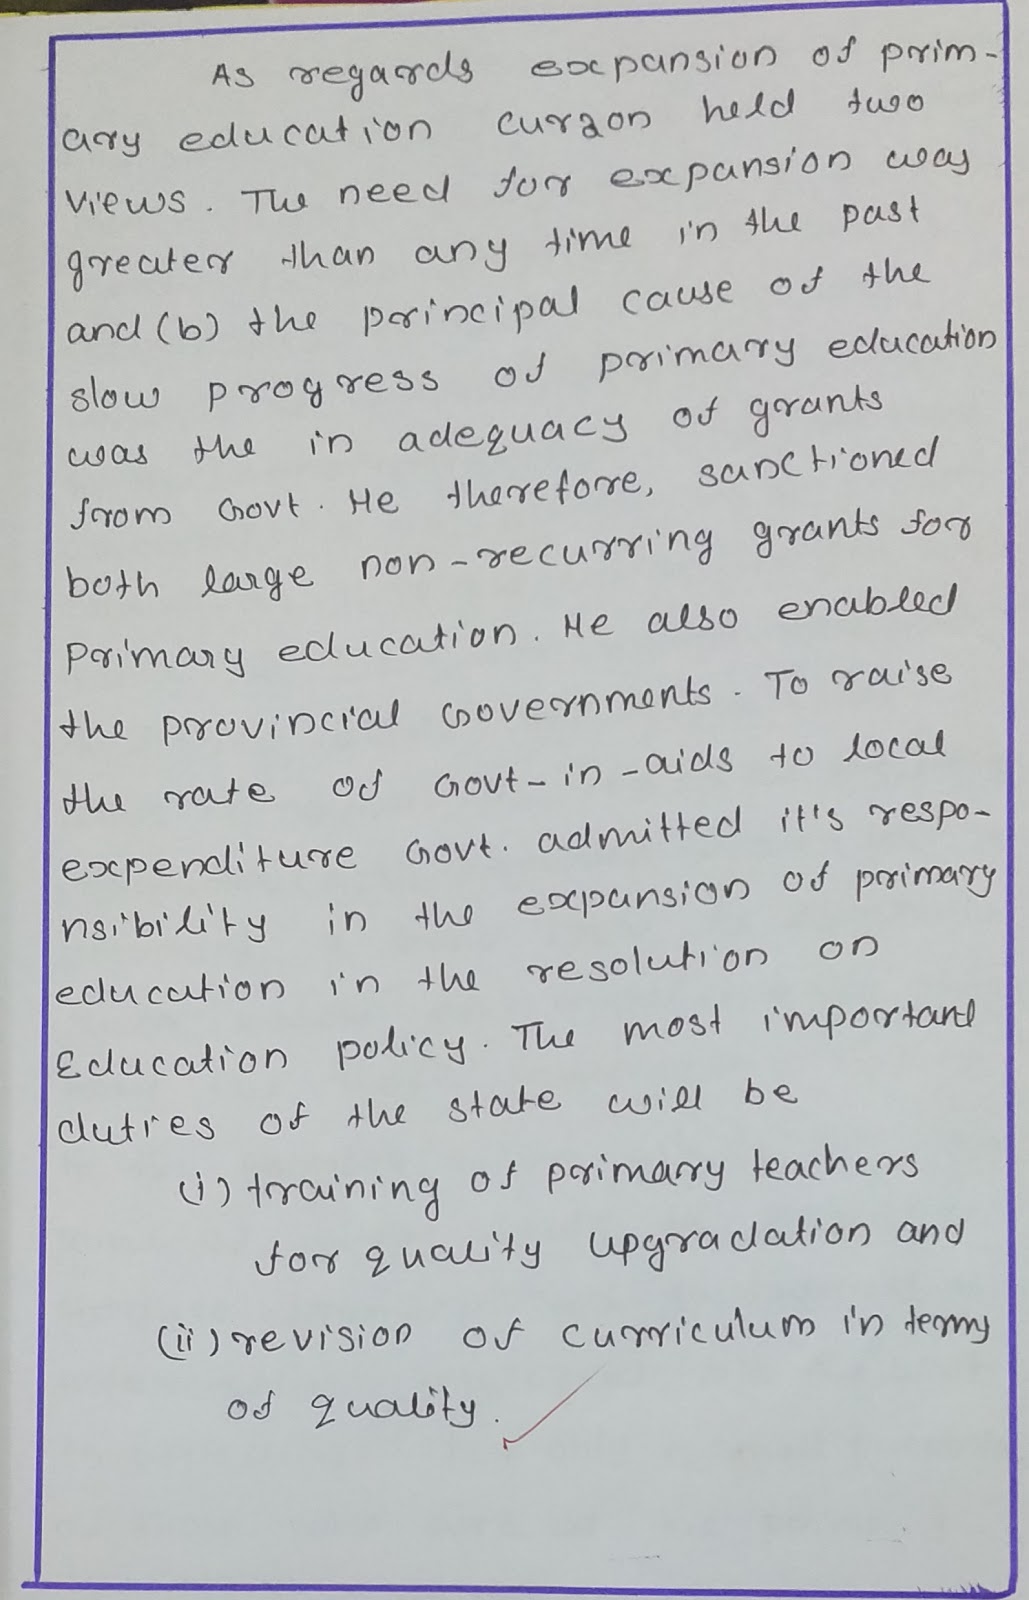 As regards expansion of prim-
ary education curzon held two
views. The need for expansion way
greater than any time in the past
and (b) the principal cause of the
slow progress of primary education
was the in adequacy of grants
from Govt. He therefore, sanctioned
both large non-recurring grants for
Primary education. He also enabled
the provincial Governments. To raise
the rate of Govt-in-aids to local
expenditure Govt. admitted it's respo-
nsibility in the expansion of primary
education in the resolution on
Education policy. The most important
duties of the state will be
(i) training of primary teachers
for quality upgradation and
(ii) revision of curriculum in terms
of quality.